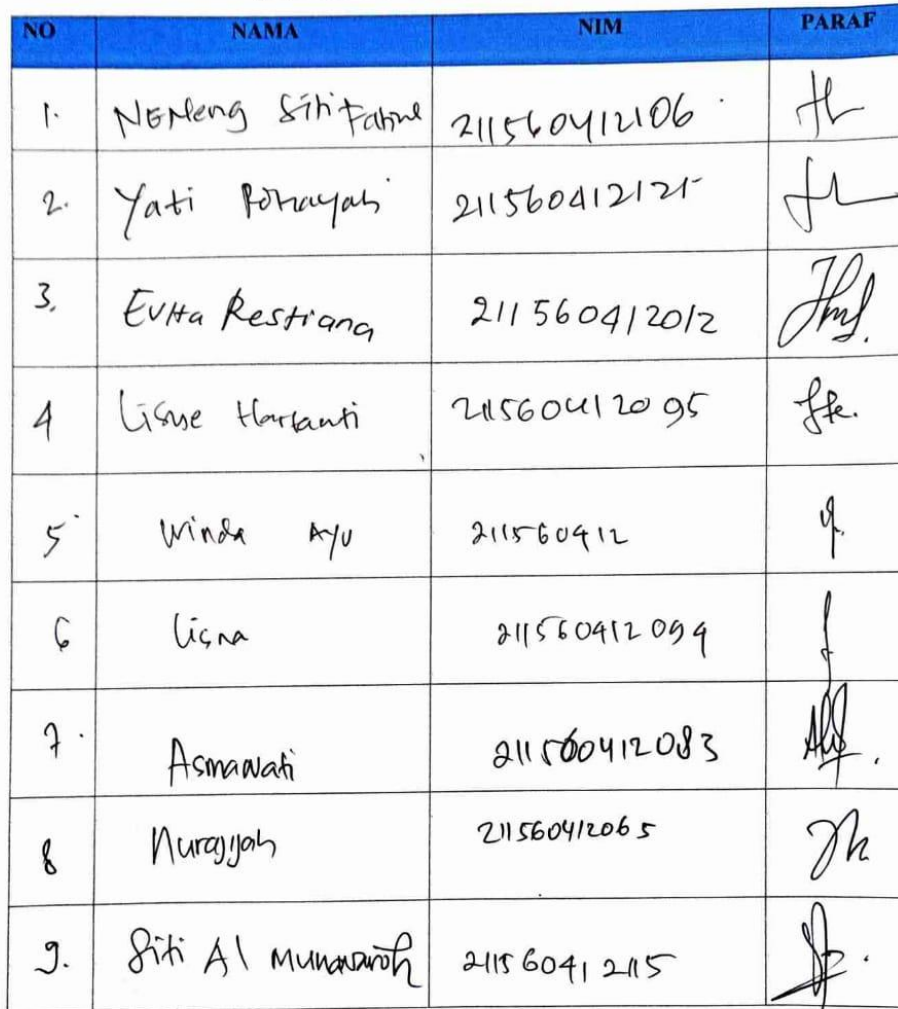 NO NAMA NIM PARAF
1. NENeng Siti Fatime 211560412106
2. Yati 211560412121
3. Evita Restiana 211560412012
4 Lisye Hartanti 211560412095
5 Winda Ayu 211560412
6 Lisna 211560412094
7. Asmawati 211560412083
8 Nurajijah 211560412065
9. Siti Al Munawaroh 211560412115